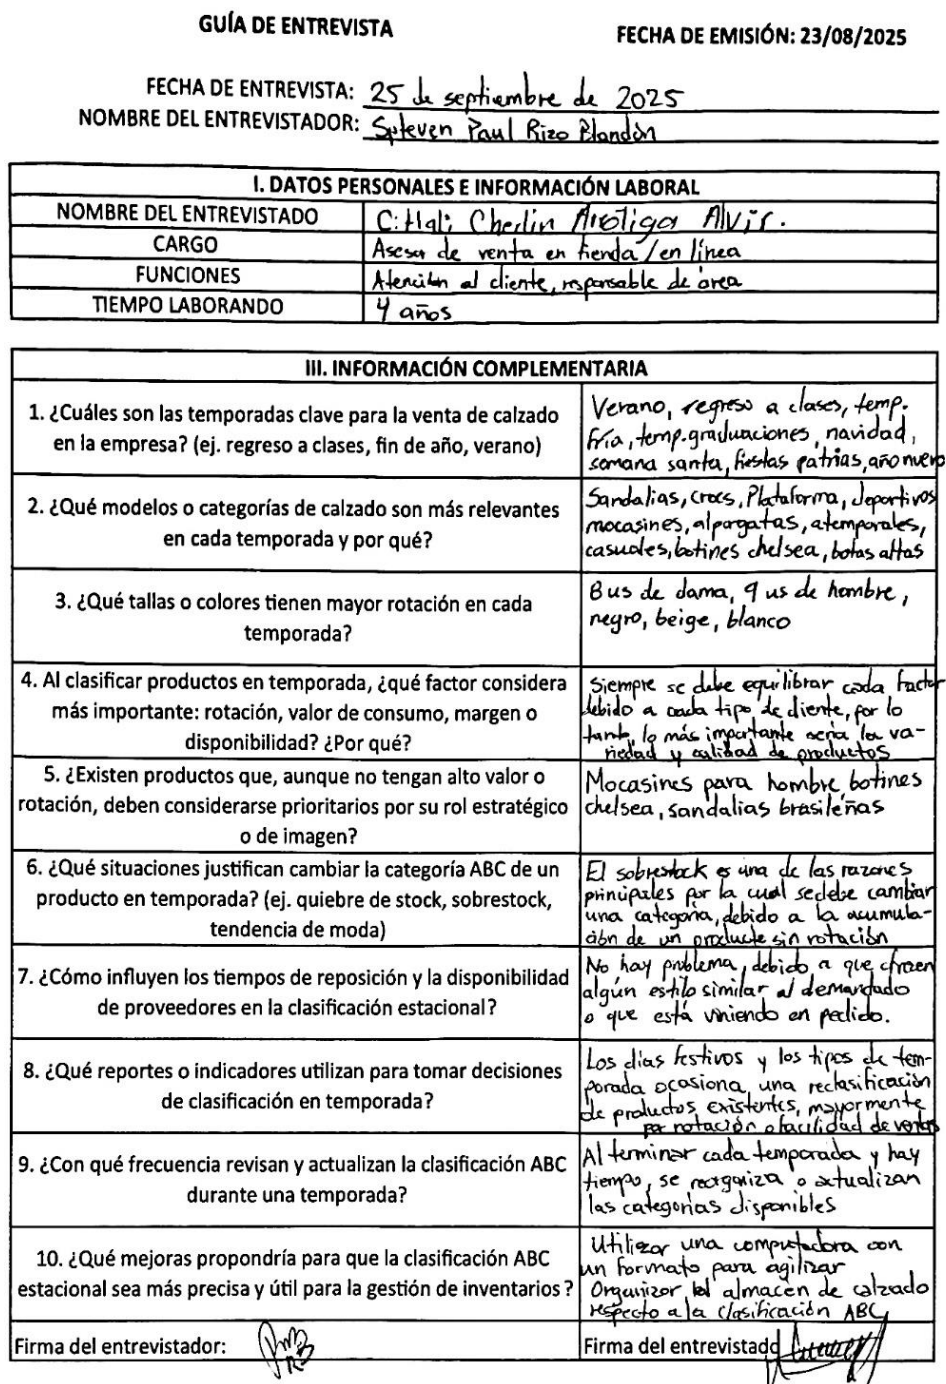 GUÍA DE ENTREVISTA
FECHA DE EMISIÓN: 23/08/2025
FECHA DE ENTREVISTA: 25 de septiembre de 2025
NOMBRE DEL ENTREVISTADOR: Spteven Paul Rizo Blandón
I. DATOS PERSONALES E INFORMACIÓN LABORAL
NOMBRE DEL ENTREVISTADO
Citlali Cherlin Aróliga Alvir.
CARGO
Asesor de venta en tienda/en línea
FUNCIONES
Atención al cliente, responsable de área
TIEMPO LABORANDO
4 años
III. INFORMACIÓN COMPLEMENTARIA
1. ¿Cuáles son las temporadas clave para la venta de calzado
en la empresa? (ej. regreso a clases, fin de año, verano)
Verano, regreso a clases, temp.
fría, temp.graduaciones, navidad,
semana santa, fiestas patrias, año nuevo
2. ¿Qué modelos o categorías de calzado son más relevantes
en cada temporada y por qué?
Sandalias, crocs, Plataforma, deportivos
mocasines, alpargatas, atemporales,
casuales, botines chelsea, botas altas
3. ¿Qué tallas o colores tienen mayor rotación en cada
temporada?
8 us de dama, 9 us de hombre,
negro, beige, blanco
4. Al clasificar productos en temporada, ¿qué factor considera
más importante: rotación, valor de consumo, margen o
disponibilidad? ¿Por qué?
Siempre se debe equilibrar cada factor
debido a cada tipo de cliente, por lo
tanto, lo más importante sería la va-
riedad y calidad de productos
5. ¿Existen productos que, aunque no tengan alto valor o
rotación, deben considerarse prioritarios por su rol estratégico
o de imagen?
Mocasines para hombre, botines
chelsea, sandalias brasileñas
6. ¿Qué situaciones justifican cambiar la categoría ABC de un
producto en temporada? (ej. quiebre de stock, sobrestock,
tendencia de moda)
El sobrestock es una de las razones
principales por la cual se debe cambiar
una categoria, debido a la acumula-
ción de un producto sin rotación
7. ¿Cómo influyen los tiempos de reposición y la disponibilidad
de proveedores en la clasificación estacional?
No hay problema, debido a que ofrecen
algún estilo similar al demandado
o que está viniendo en pedido.
8. ¿Qué reportes o indicadores utilizan para tomar decisiones
de clasificación en temporada?
Los días festivos y los tipos de tem-
porada ocasiona una reclasificación
de productos existentes, mayormente
por rotación o facilidad de ventas
9. ¿Con qué frecuencia revisan y actualizan la clasificación ABC
durante una temporada?
Al terminar cada temporada y hay
tiempo, se reorganiza o actualizan
las categorias disponibles
10. ¿Qué mejoras propondría para que la clasificación ABC
estacional sea más precisa y útil para la gestión de inventarios?
Utilizar una computadora con
un formato para agilizar
Organizar el almacén de calzado
respecto a la clasificación ABC
Firma del entrevistador:
Firma del entrevistado